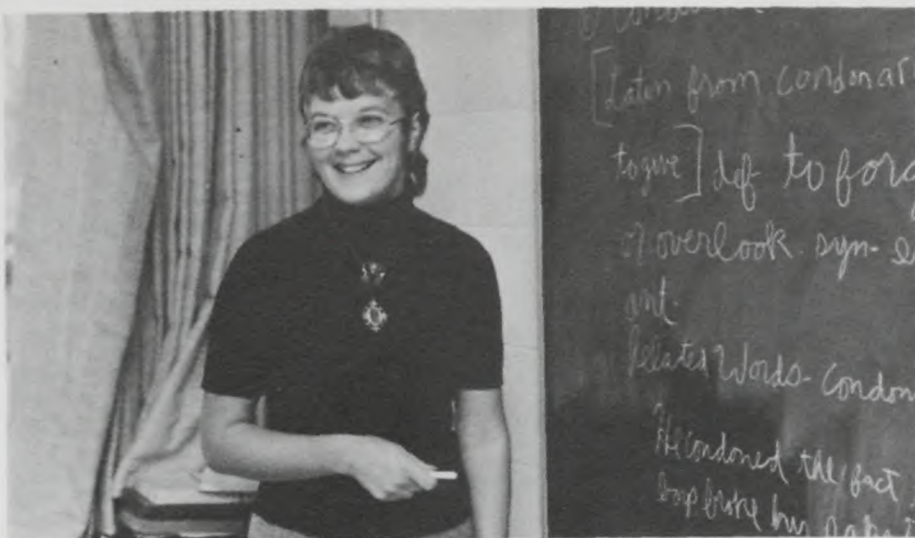 [Laten from condonar
to give] def to forg
or overlook. syn- e
ant.
Related Words- Condon
He condoned the fact
boys broke his